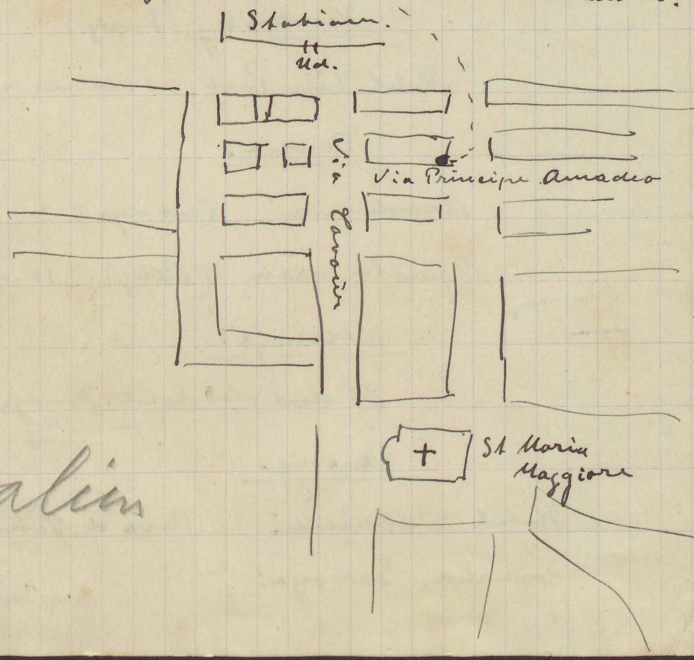 Stabiam.
Ud.
Via Cavour
Via Principe Amadeo
St Maria
Maggiore
alien